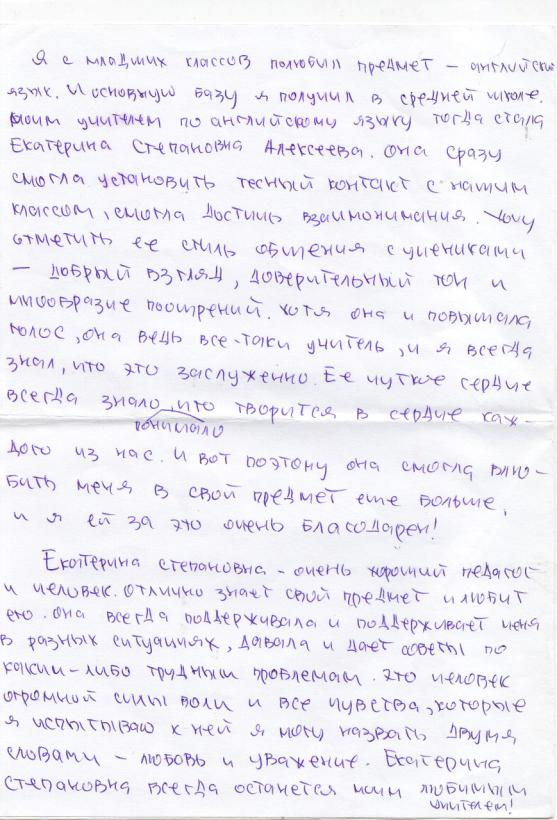 Я с младших классов полюбил предмет – английский
язык. И основную базу я получил в средней школе.
Моим учителем по английскому языку тогда стала
Екатерина Степановна Алексеева. Она сразу
смогла установить тесный контакт с нашим
классом, смогла достичь взаимонимания. Хочу
отметить ее стиль общения с учениками
– добрый взгляд, доверительный тон и
многообразие поощрений. Хотя она и повышала
голос, она ведь все-таки учитель, и я всегда
знал, что это заслуженно. Ее чуткое сердце
всегда знало, что творится в сердце каж-
понимало
дого из нас. И вот поэтому она смогла влю-
бить меня в свой предмет еще больше,
и я ей за это очень благодарен!
Екатерина Степановна – очень хороший педагог
и человек. Отлично знает свой предмет и любит
его. Она всегда поддерживала и поддерживает меня
в разных ситуациях, давала и дает советы по
каким-либо трудным проблемам. Это человек
огромной силы воли и все чувства, которые
я испытываю к ней я могу назвать двумя
словами – любовь и уважение. Екатерина
Степановна всегда останется моим любимым
учителем!